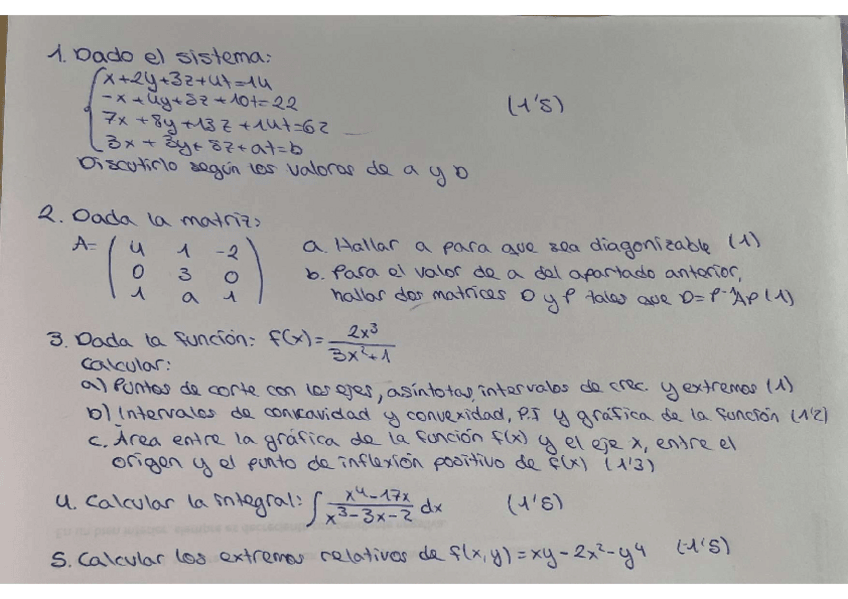 1. Dado el sistema:
x+2y+3z+4t=14
-x+4y+5z+10t=22
(1'5)
7x+8y+13z+14t=62
3x+3y+5z+at=b
Discutirlo según los valores de a y b
2. Dada la matriz:
A= ( 4 1 -2
0 3 0
1 a 1 )
a. Hallar a para que sea diagonizable (1)
b. Para el valor de a del apartado anterior,
hallar dos matrices D y P tales que D=P⁻¹AP (1)
3. Dada la función: f(x)= 2x³ / 3x²+1
Calcular:
a) Puntos de corte con los ejes, asíntotas, intervalos de crec. y extremos (1)
b) Intervalos de concavidad y convexidad, P.I y gráfica de la función (1'2)
c. Área entre la gráfica de la función f(x) y el eje x, entre el
origen y el punto de inflexión positivo de f(x) (1'3)
4. Calcular la integral: ∫ x⁴-17x / x³-3x-2 dx (1'5)
5. Calcular los extremos relativos de f(x,y)=xy-2x²-y⁴ (1'5)